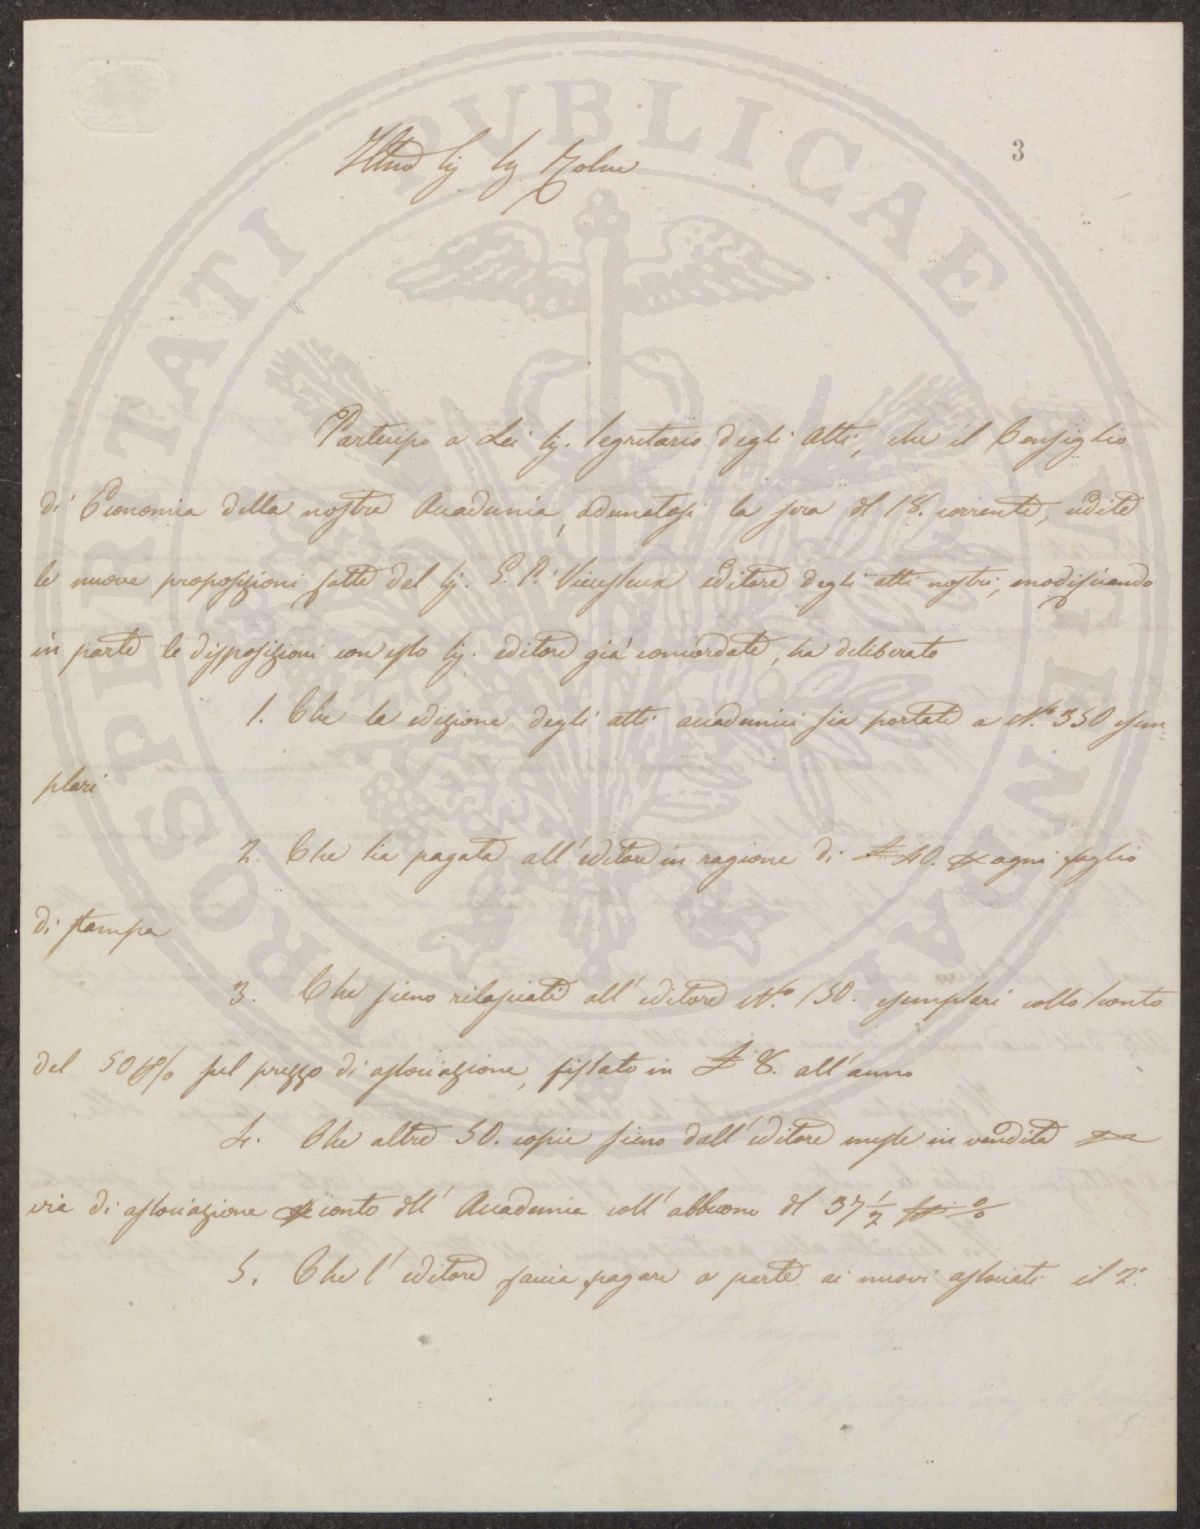 3
Illmo Sig Sig Pne Colmo
Partecipo a Lei Sig. Segretario degli Atti, che il Consiglio
di Economia della nostra Accademia, adunatosi la sera del 18. corrente, udite
le nuove proposizioni fatte dal Sig. G. P. Vieusseux editore degli atti nostri, modificando
in parte le disposizioni con esso Sig. editore già concordate, ha deliberato
1. Che la edizione degli atti accademici sia portata a N.° 350 esem-
plari
2. Che sia pagata all'editore in ragione di £ 40. ogni foglio
di stampa
3. Che sieno rilasciate all'editore N.° 150. esemplari collo sconto
del 50 p% sul prezzo di associazione, fissato in £ 8. all'anno
4. Che altre 50. copie sieno dall'editore messe in vendita
via di associazione conto dell'Accademia coll'abbuono del 37 1/2 %
5. Che l'editore faccia pagare a parte ai nuovi associati il 2.°
PROSPERITATI PUBLICAE AUGENDAE